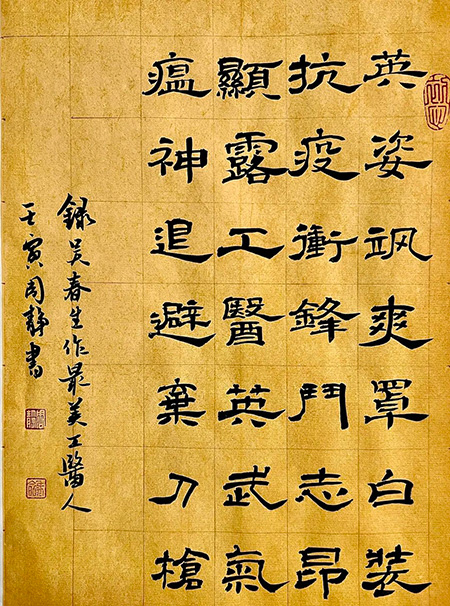 英姿飒爽罩白装
抗疫衝鋒鬥志昂
顯露工醫英武氣
瘟神退避棄刀槍
録吴春生作最美工醫人
壬寅周静書